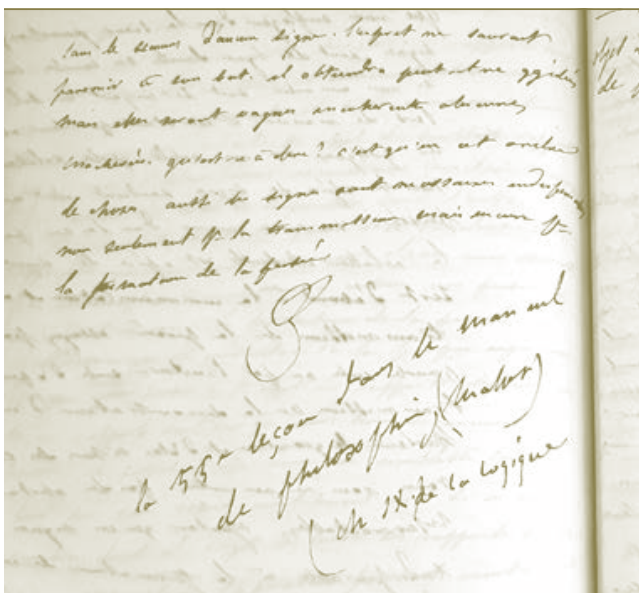 sans le secours d'aucun signe. l'esprit ne saurait
parvenir à son but. il obtiendra peut-être qq idées
mais elles seront vagues incohérentes obscures
qu'est-ce à dire? c'est qu'en cet ordre
de choses aussi les signes sont nécessaires
non seulement pr la transmission mais encore pr
la formation de la pensée
la 55e leçon dans le manuel
de philosophie, (Mallet)
(ch IX de la logique
de